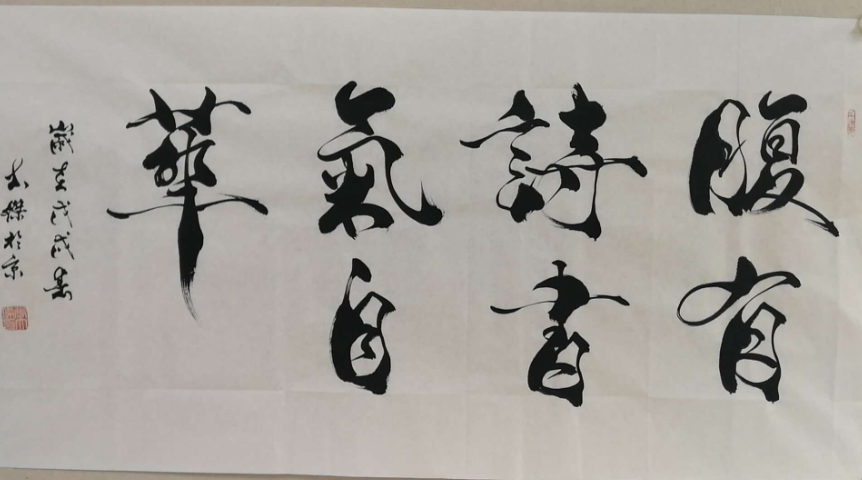 腹有
詩書
氣自
華
歲在戊戌夏
木傑於京